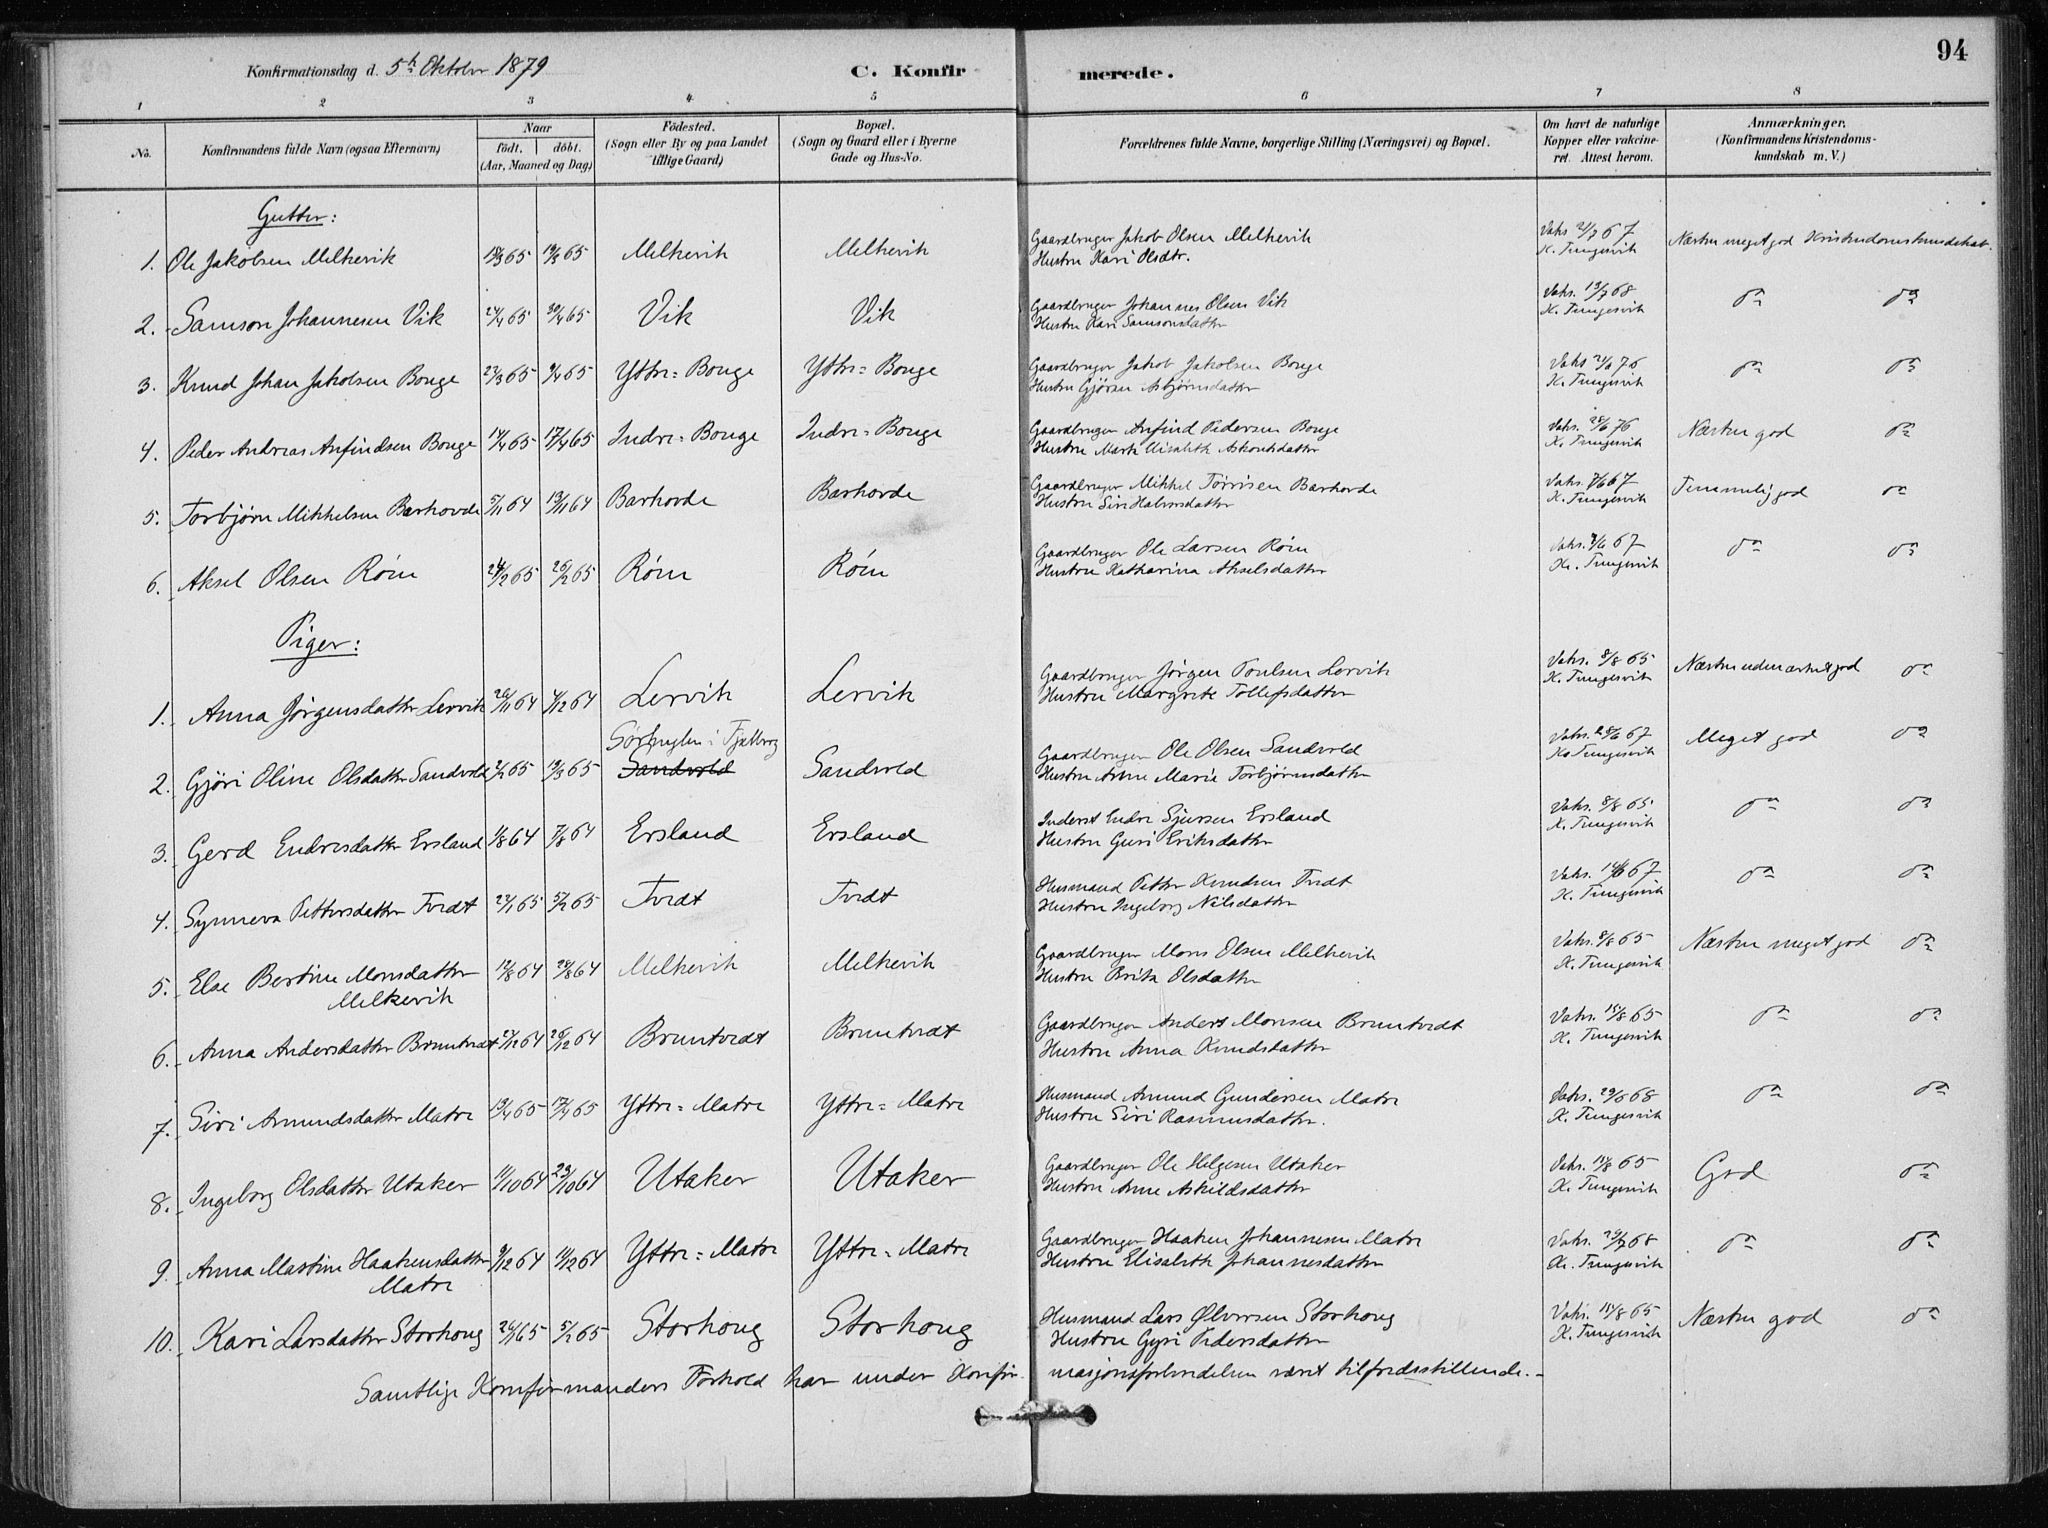 94
Konfirmationsdag d. 5te Oktober 1879
C. Konfirmerede.
1 2 3 4 5 6 7 8
No.
Konfirmandens fulde Navn (ogsaa Efternavn)
Naar
födt. döbt.
(Aar, Maaned og Dag)
Födested.
(Sogn eller By og paa Landet
tillige Gaard)
Bopæl.
(Sogn og Gaard eller i Byerne
Gade og Hus-No.
Forældrenes fulde Navne, borgerlige Stilling (Næringsvei) og Bopæl.
Om havt de naturlige
Kopper eller vakcine-
ret. Attest herom.
Anmærkninger,
(Konfirmandens Kristendoms-
kundskab m. V.)
Gutter:
1. Ole Jakobsen Melkevik 65 65 Melkevik Melkevik Gaardbruger Jakob Olsen Melkevik Vaks 67 Næsten meget god Kristendomskundskab.
Hustru Kari Olsdtr. K. Tungesvik
2. Samson Johannesen Vik 24/4 65 30/4 65 Vik Vik Gaardbruger Johannes Olsen Vik Vaks. 13/7 68 do do
Hustru Kari Samsonsdatter K. Tungesvik
3. Knud Johan Jakobsen Bouge 23/3 65 9/4 65 Yttre=Bouge Yttre=Bouge Gaardbruger Jakob Jakobsen Bouge Vaks 76 do do
Hustru Gjören Asbjørnsdatter K. Tungesvik
4. Peder Andreas Anfindsen Bouge 14/4 65 17/4 65 Indre=Bouge Indre=Bouge Gaardbruger Anfind Pedersen Bouge Vaks. 28/6 76 Næsten god do
Hustru Elisabeth K. Tungesvik
5. Torbjørn Mikkelsen Barhovde 5/11 64 13/11 64 Barhovde Barhovde Gaardbruger Mikkel Törrisen Barhovde Vaks. 67 Temmelig god do
Hustru Siri Halvorsdatter K. Tungesvik
6. Aksel Olsen Röm 65 26/2 65 Röm Röm Gaardbruger Ole Larsen Röm Vaks. 67 do do
Hustru Katharina Akselsdatter K. Tungesvik
Piger:
1. Anna Jörgensdatter Lervik 26/11 64 4/12 64 Lervik Lervik Gaardbruger Jörgen Poulsen Lervik Vaks. 8/8 65 Næsten udmærket god do
Hustru Margrete Tollefsdatter K. Tungesvik
Sörhuglen i Fjelberg
2. Gjöri Oline Olsdatter Sandvold 65 19/3 65 Sandvold Sandvold Gaardbruger Ole Olsen Sandvold Vaks. 28/6 67 Meget god do
Hustru Anne Marie Torbjörnsdatter K. Tungesvik
3. Gerd Endresdatter Ersland 1/8 64 7/8 64 Ersland Ersland Inderst Endre Sjursen Ersland Vaks. 8/8 65 do do
Hustru Guri Eriksdatter K. Tungesvik
4. Synneva Pettersdatter Tvedt 23/1 65 5/2 65 Tvedt Tvedt Husmand Petter Knudsen Tvedt Vaks. 67 do do
Hustru Ingeborg Nilsdatter K. Tungesvik
5. Else Bertine Monsdatter 12/8 64 28/8 64 Melkevik Melkevik Gaardbruger Mons Olsen Melkevik Vaks. 8/8 65 Næsten meget god do
Melkevik Hustru Brita Olsdatter K. Tungesvik
6. Anna Andersdatter Bruntvedt 64 26/12 64 Bruntvedt Bruntvedt Gaardbruger Anders Monsen Bruntvedt Vaks. 15/8 65 do do
Hustru Anna Knudsdatter K. Tungesvik
7. Siri Amundsdatter Matre 13/4 65 17/4 65 Yttre=Matre Yttre=Matre Husmand Amund Gundersen Matre Vaks. 68 do do
Hustru Siri Rasmusdatter. K. Tungesvik
8. Ingeborg Olsdatter Utaker 11/10 64 23/10 64 Utaker Utaker Gaardbruger Ole Helgesen Utaker Vaks. 15/8 65 God do
Hustru Anne Askildsdatter K. Tungesvik
9. Anna Martine Haakensdatter 9/12 64 11/12 64 Yttre=Matre Yttre=Matre Gaardbruger Haaken Johannesen Matre Vaks. 68 do do
Matre Hustru Elisabeth Johannesdatter K. Tungesvik
10. Kari Larsdatter Storhoug 26/1 65 5/2 65 Storhoug Storhoug Husmand Lars Ølversen Storhoug Vaks. 15/8 65 Næsten god do
Hustru Gyri Pedersdatter K. Tungesvik
Samtlige Konfirmanders Forhold har under Konfirmasjonsforberedelsen været tilfredsstillende.-